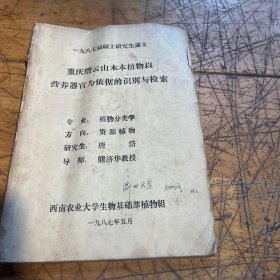 一九八七届硕士研究生論文
重庆缙云山木本植物以
营养器官为依据的识别与检索
专业：植物分类学
方向：资源植物
研究生：唐岱
导师：熊济华教授
西南农业大学生物基础部植物組
一九八七年五月